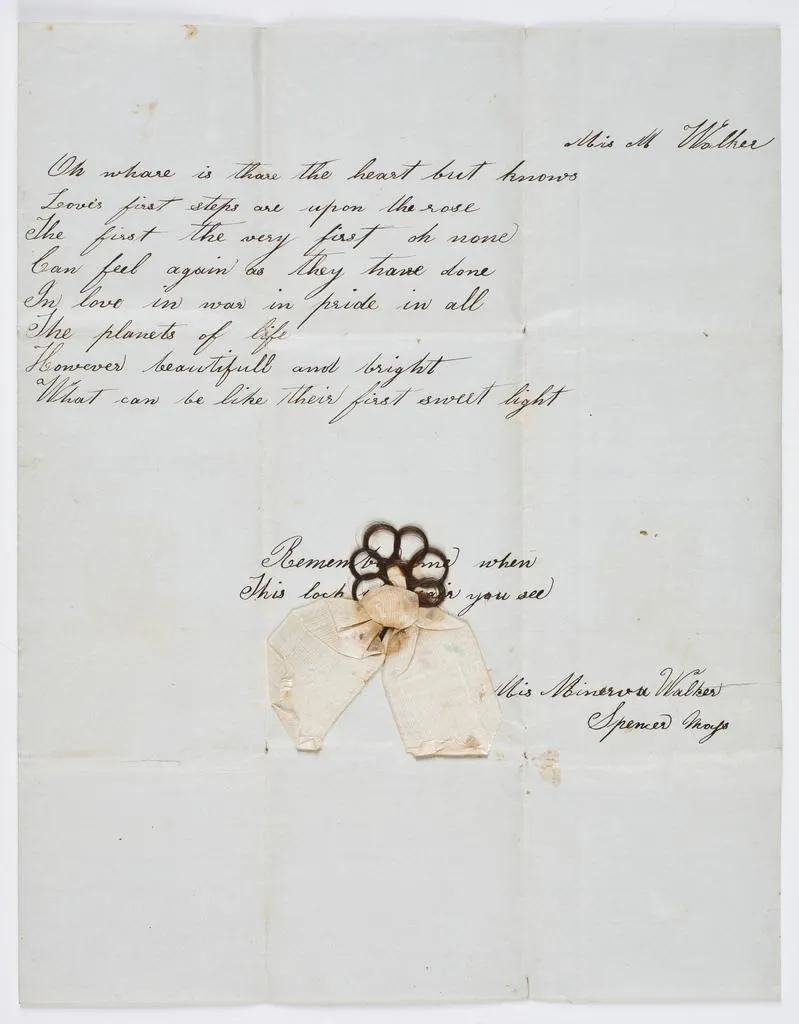 Mis M Walker
Oh whare is thare the heart but knows
Love's first steps are upon the rose
The first the very first oh none
Can feel again as they have done
In love in war in pride in all
The planets of life
However beautifull and bright
What can be like their first sweet light
Remem me when
This lock you see
Mis Minerva Walker
Spencer Mays